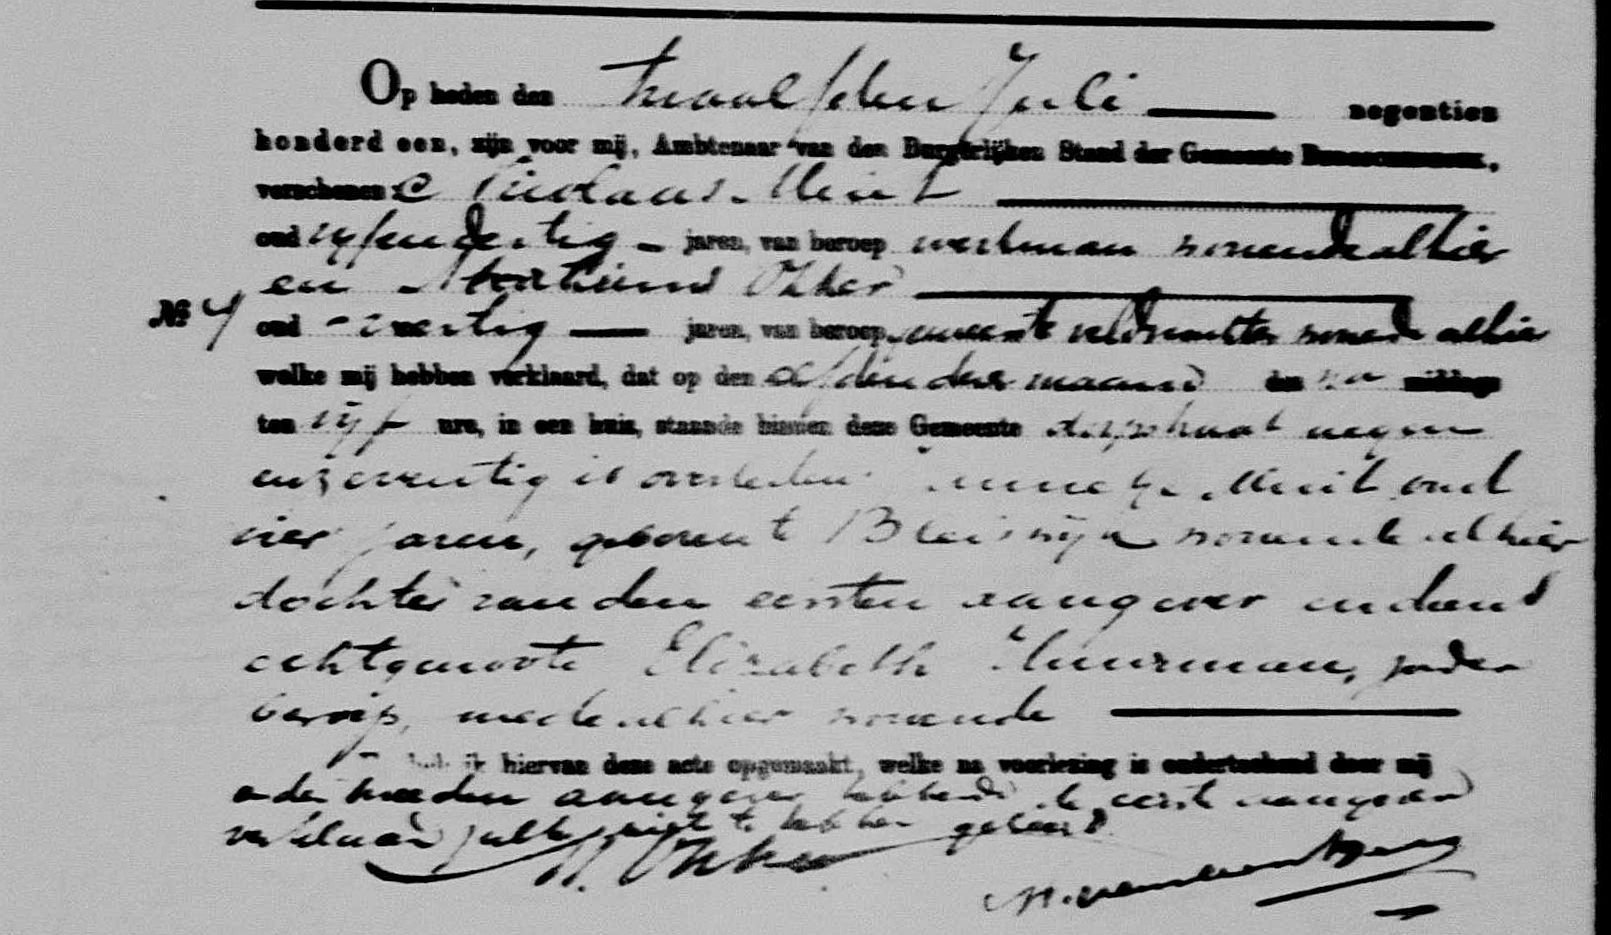 Op heden den twaalfden Juli negentien
honderd een, zijn voor mij, Ambtenaar van den Burgerlijken Stand der Gemeente
verschenen: Nicolaas Muit
oud vijfendertig jaren, van beroep werkman wonende alhier
en Okker
No 4 oud veertig jaren, van beroep gemeente veldwachter wonende alhier
welke mij hebben verklaard, dat op den elfden dezer maand des na middags
ten vijf ure, in een huis, staande binnen deze Gemeente negen
en zeventig is overleden Muit oud
vier jaren, geboren te Bleiswijk wonende alhier
dochter van den eersten aangever en diens
echtgenoote Elizabeth Huurman, zonder
beroep, mede alhier wonende
heb ik hiervan deze acte opgemaakt, welke na voorlezing is onderteekend door mij
en den tweeden aangever hebbende de eerste aangever
verklaard zulks niet te hebben geleerd.
Okker